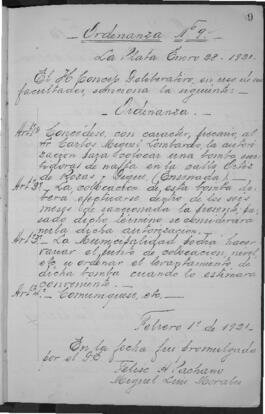 9
Ordenanza Nº 9.
La Plata Enero 28. 1921.
El H. Concejo Deliberativo, en uso de sus
facultades, sanciona la siguiente:
Ordenanza.
Art. 1º. Concédese, con caracter, precario, al
Sr Carlos Miguel Lombardo, la autori-
zacion para colocar una bomba sur-
tidora de nafta en la calle Ortiz
de Rosas y (Ensenada).
Art. 2º. La colocacion de esta bomba de
berá efectuarse dentro de los seis
meses de sancionada la presente, pa-
sado dicho termino se considerará
nula dicha autorizacion.
Art. 3º. La Municipalidad podrá hacer
variar el punto de colocacion,
etc o ordenar el levantamiento de
dicha bomba cuando lo estimara
conveniente.
Art. 4º. Comuniquese, etc.
Febrero 1º de 1921.
En la fecha fué promulgada
por el
Felix A. Lachano
Miguel Luis Morales